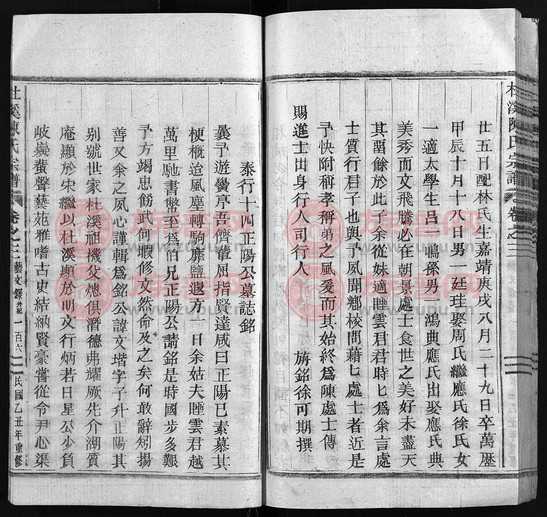 杜溪陳氏宗譜 卷之三
廿五日配林氏生嘉靖庚戌八月二十九日卒萬歷
甲辰十月十八日男一廷珪娶周氏繼應氏徐氏女
一適太學生呂一鳴孫男二鴻典應氏出娶應氏典
美秀而文飛騰必在朝景處士食世之美好未盡天
其畱餘於此子余從妹適睡雲君君時匕為余言處
士質行君子也與予夙聞鄉校間藉匕處士者近是
予快附稱孝稱弟之風爰而其始終為陳處士傳
賜進士出身行人司行人 旃銘徐可期撰
泰行十四正陽公墓誌銘
曩予遊黌序吾儕輩屈指賢達咸曰正陽已素慕其
梗槪迨風塵轉駒旂鹽遐方一日余姑夫睡雲君越
萬里馳書幣至為伯兄正陽公請銘是時國步多艱
予方竭忠飭武何暇修文然命及之矣何敢辭矧揚
善又余之夙心謹輯為銘公諱文堦字子升正陽其
別號世家杜溪祖機父熜俱潛德弗耀厥先介湖質
庵顯於宋繼以杜溪顯於明文行炳若日星公少負
岐嶷蜚聲藝苑雅嗜古史結納賢豪嘗從令尹心渠
杜溪陳氏宗譜 卷之三 藝文錄 外紀 一百六 民國乙丑年重修